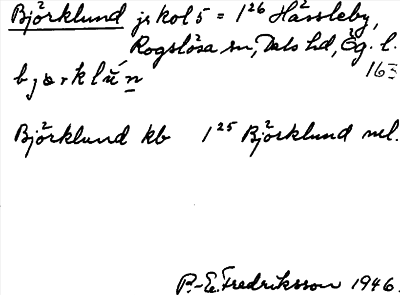 Björklund js kol 5 = 1²⁶ Hässleby,
Rogslösa sn, Dals hd, Ög. l.
björklún 16
Björklund kb 1²⁵ Björklund nel.
P.-E. Fredriksson 1946.